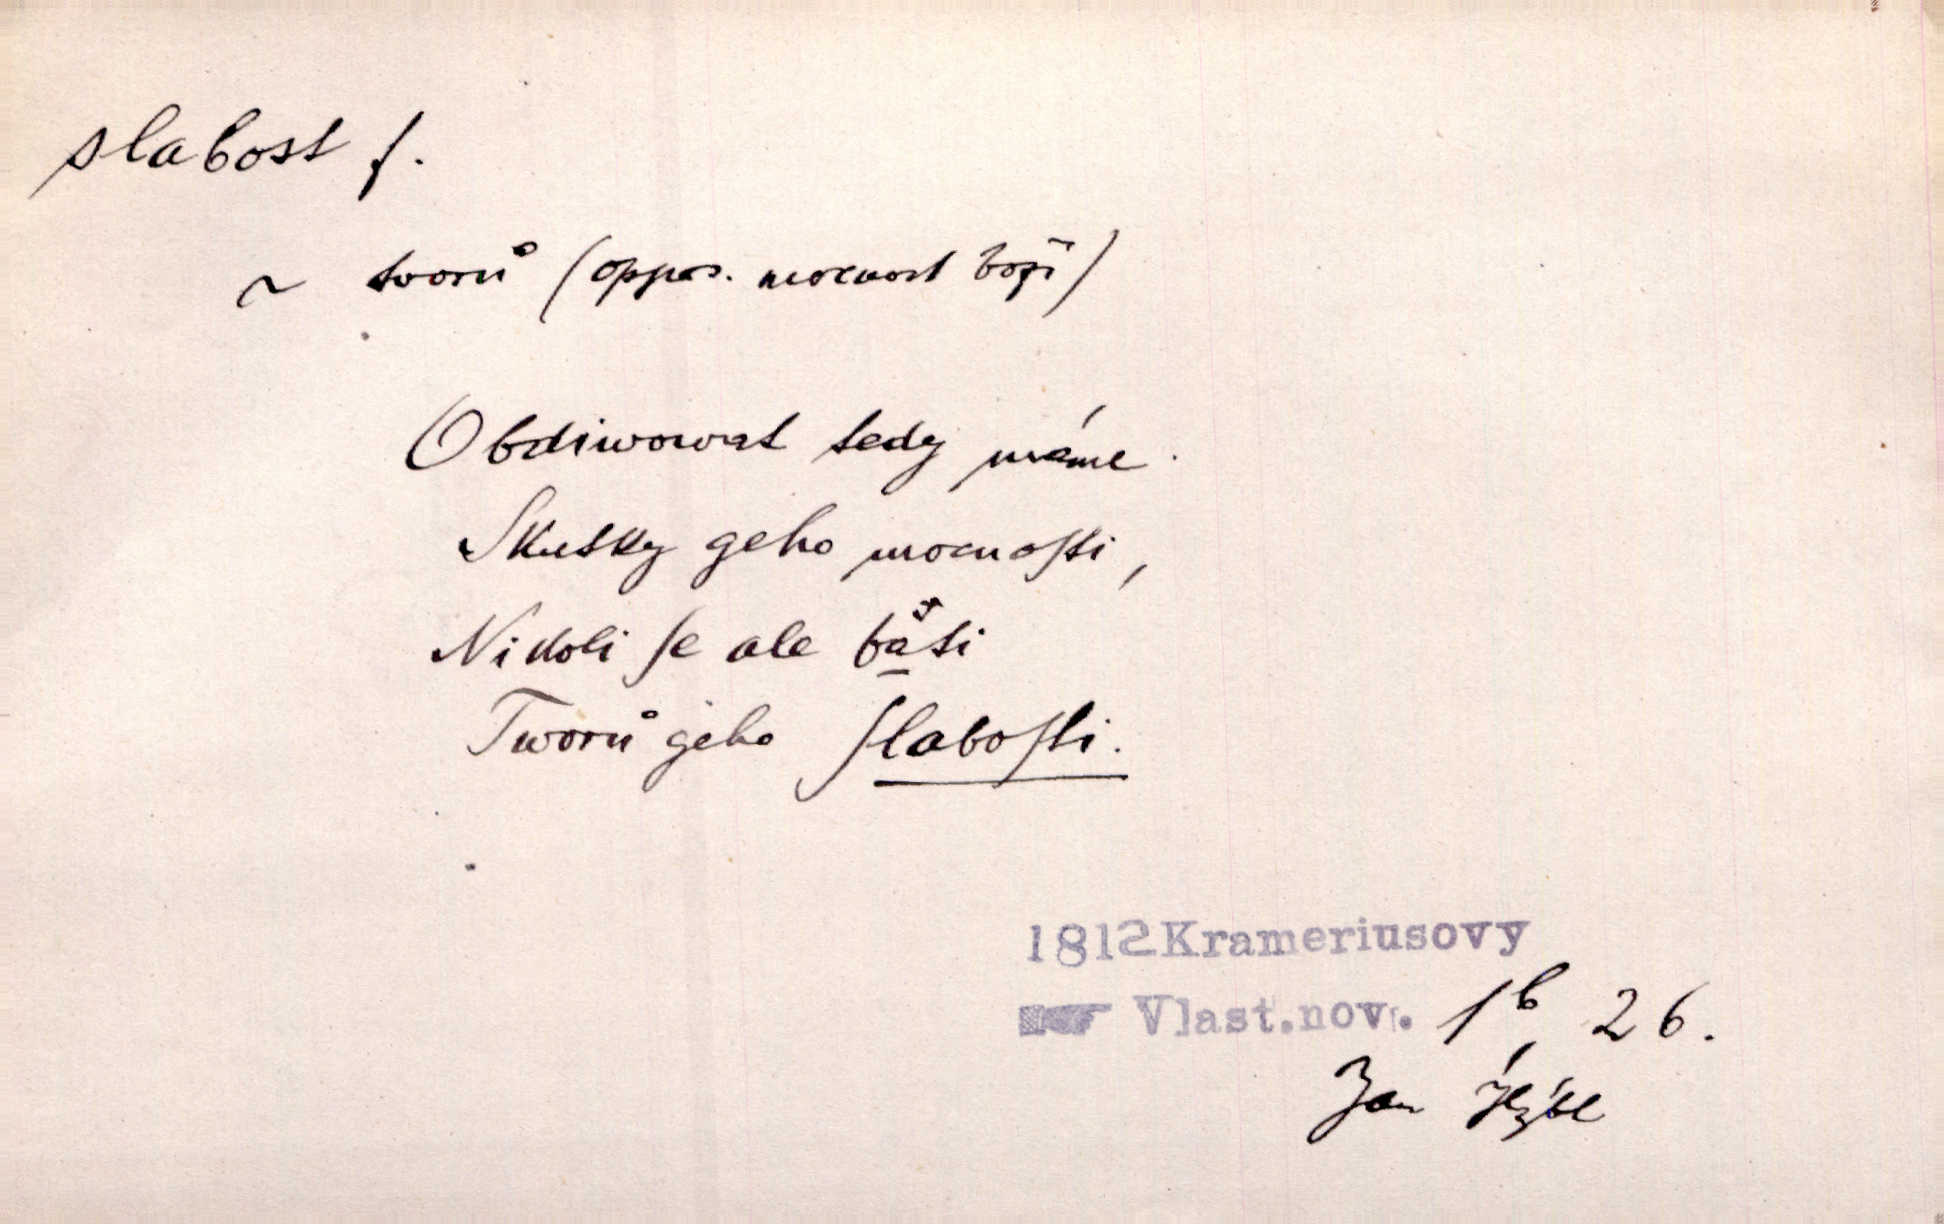 slabost f.
~ tvorů (oppos. mocnost boží)
Obdiwowat tedy máme
Skutky geho mocnoſti,
Nikoli ſe ale báti
Tworů geho ſlaboſti.
1812 Krameriusovy
☛ Vlast.nov. 1b 26.
Jan